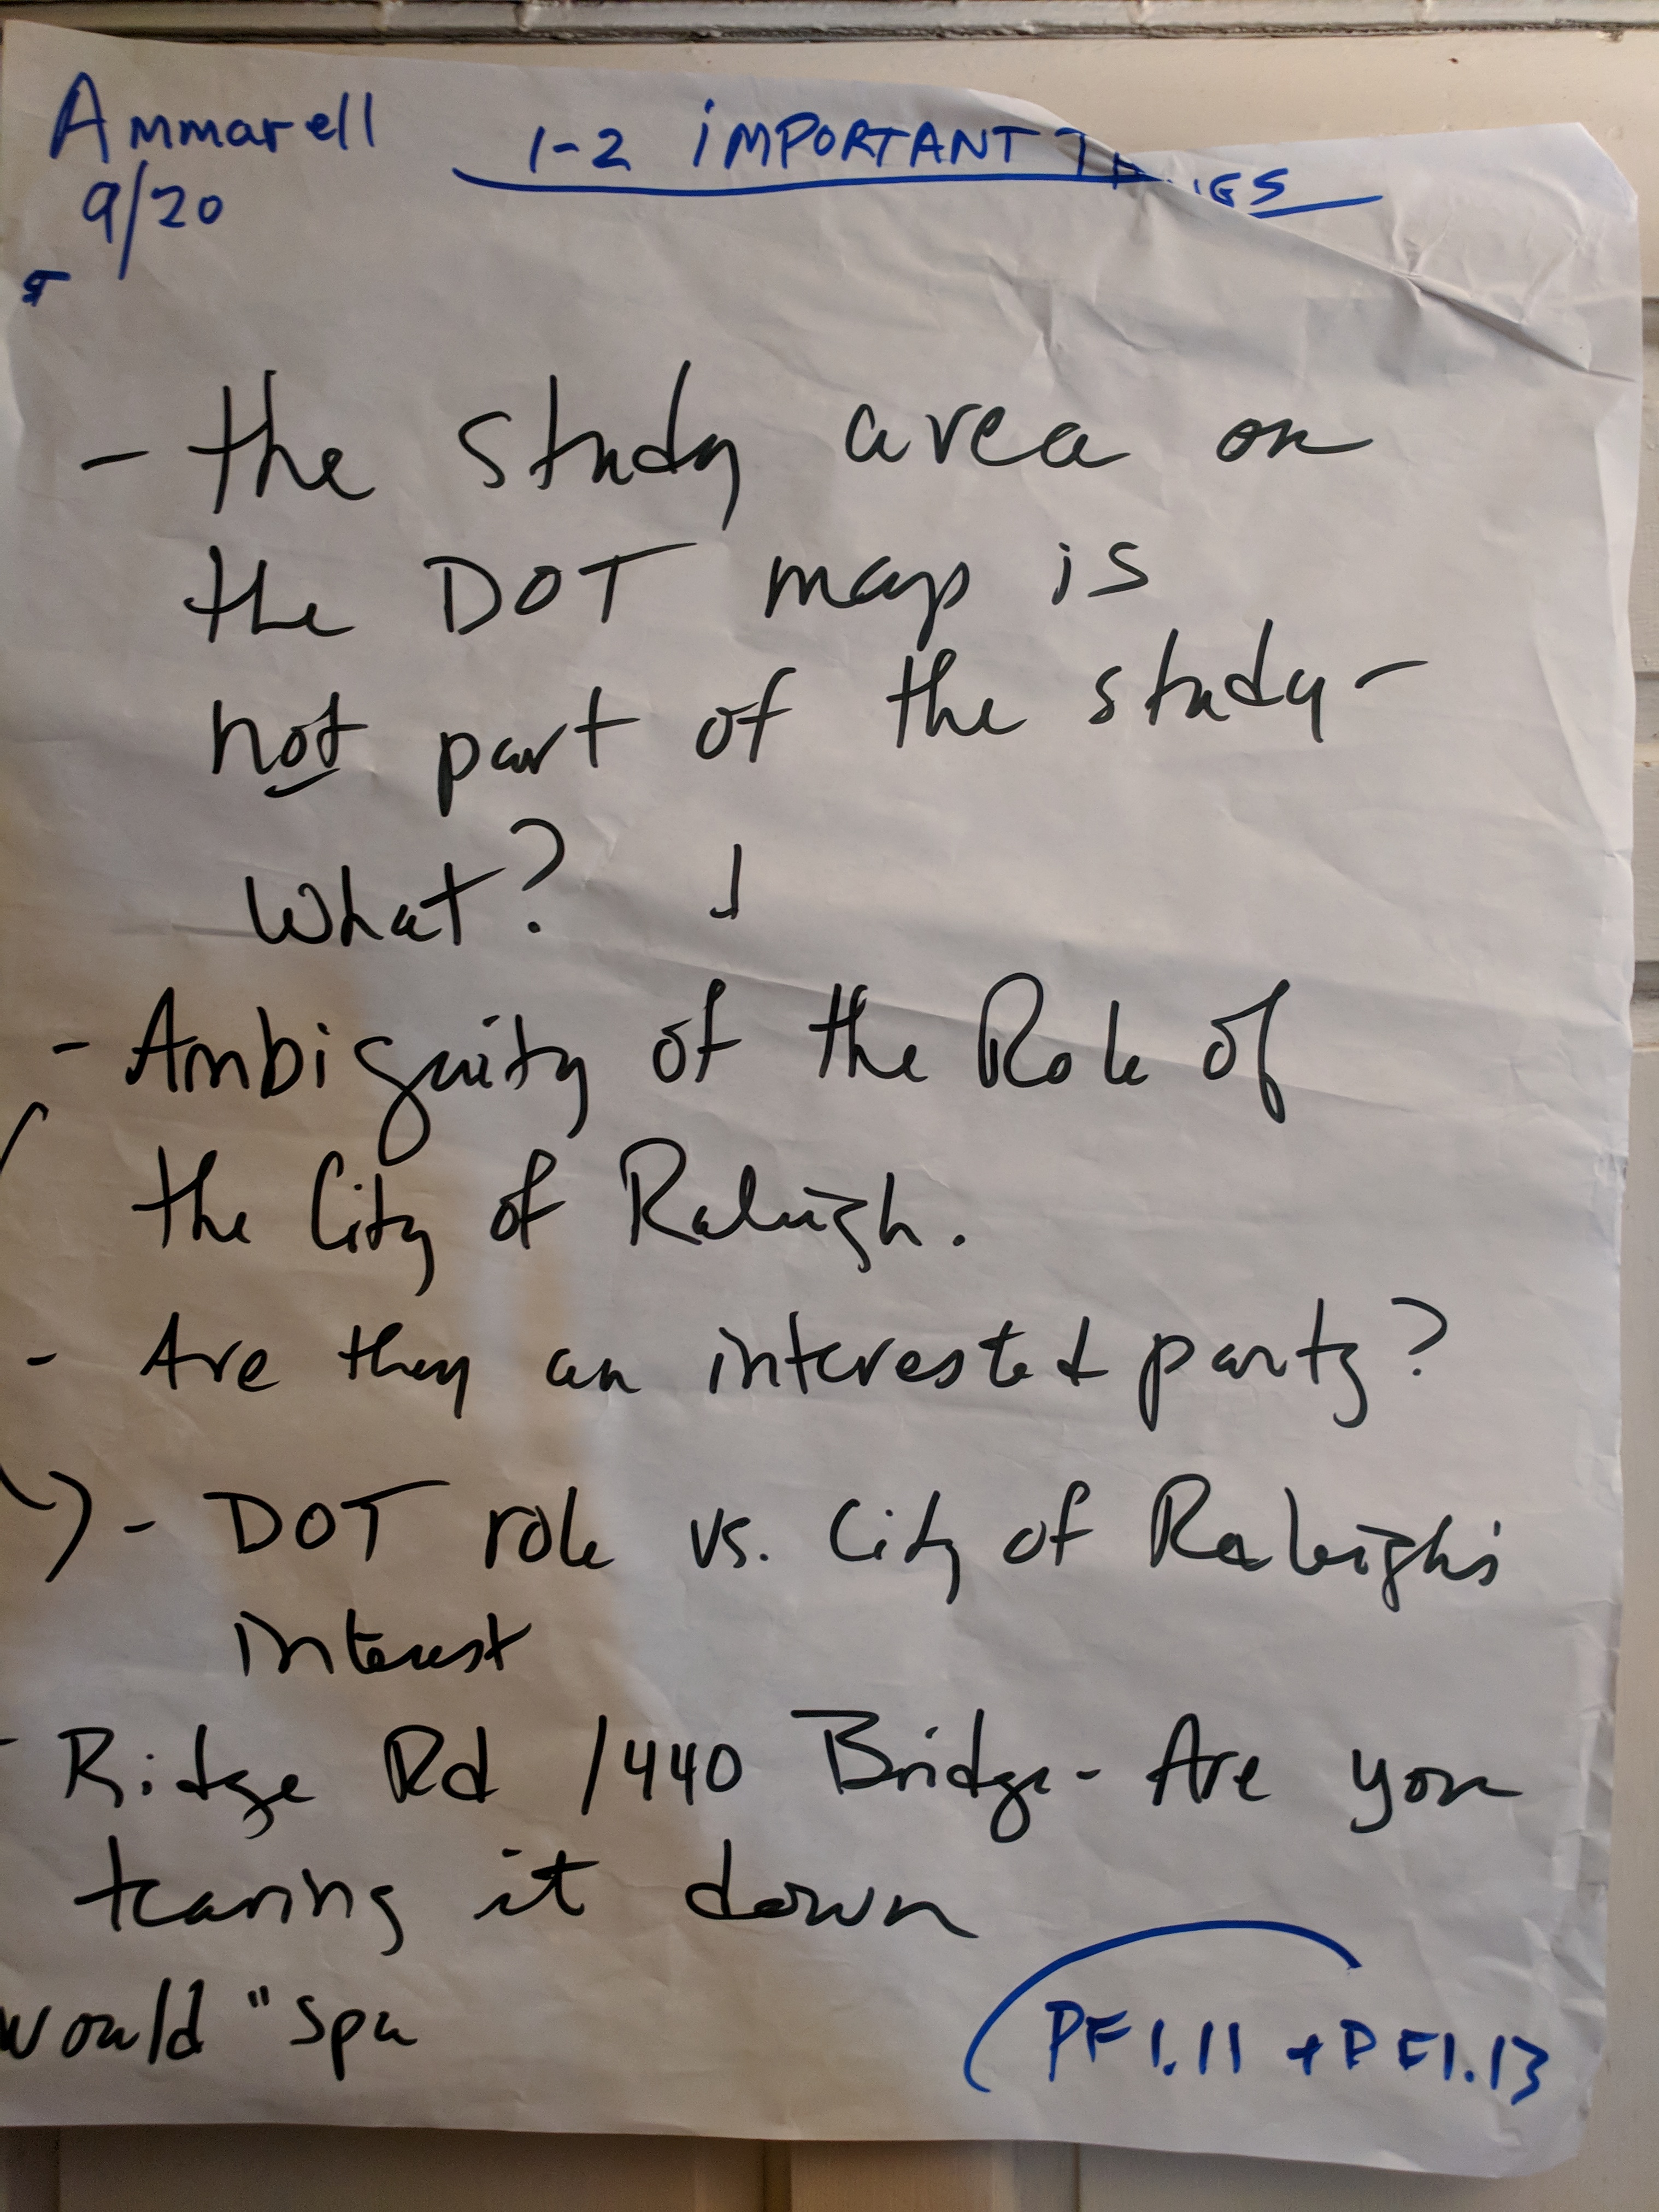 Ammarell
9/20
1-2 IMPORTANT
- the study area on
the DOT map is
not part of the study -
What?
- Ambiguity of the Role of
the City of Raleigh.
- Are they an interested party?
- DOT role vs. City of Raleigh's
interest
- Ridge Rd / 440 Bridge - Are you
tearing it down
would "spa
PF1.11 + PF1.13